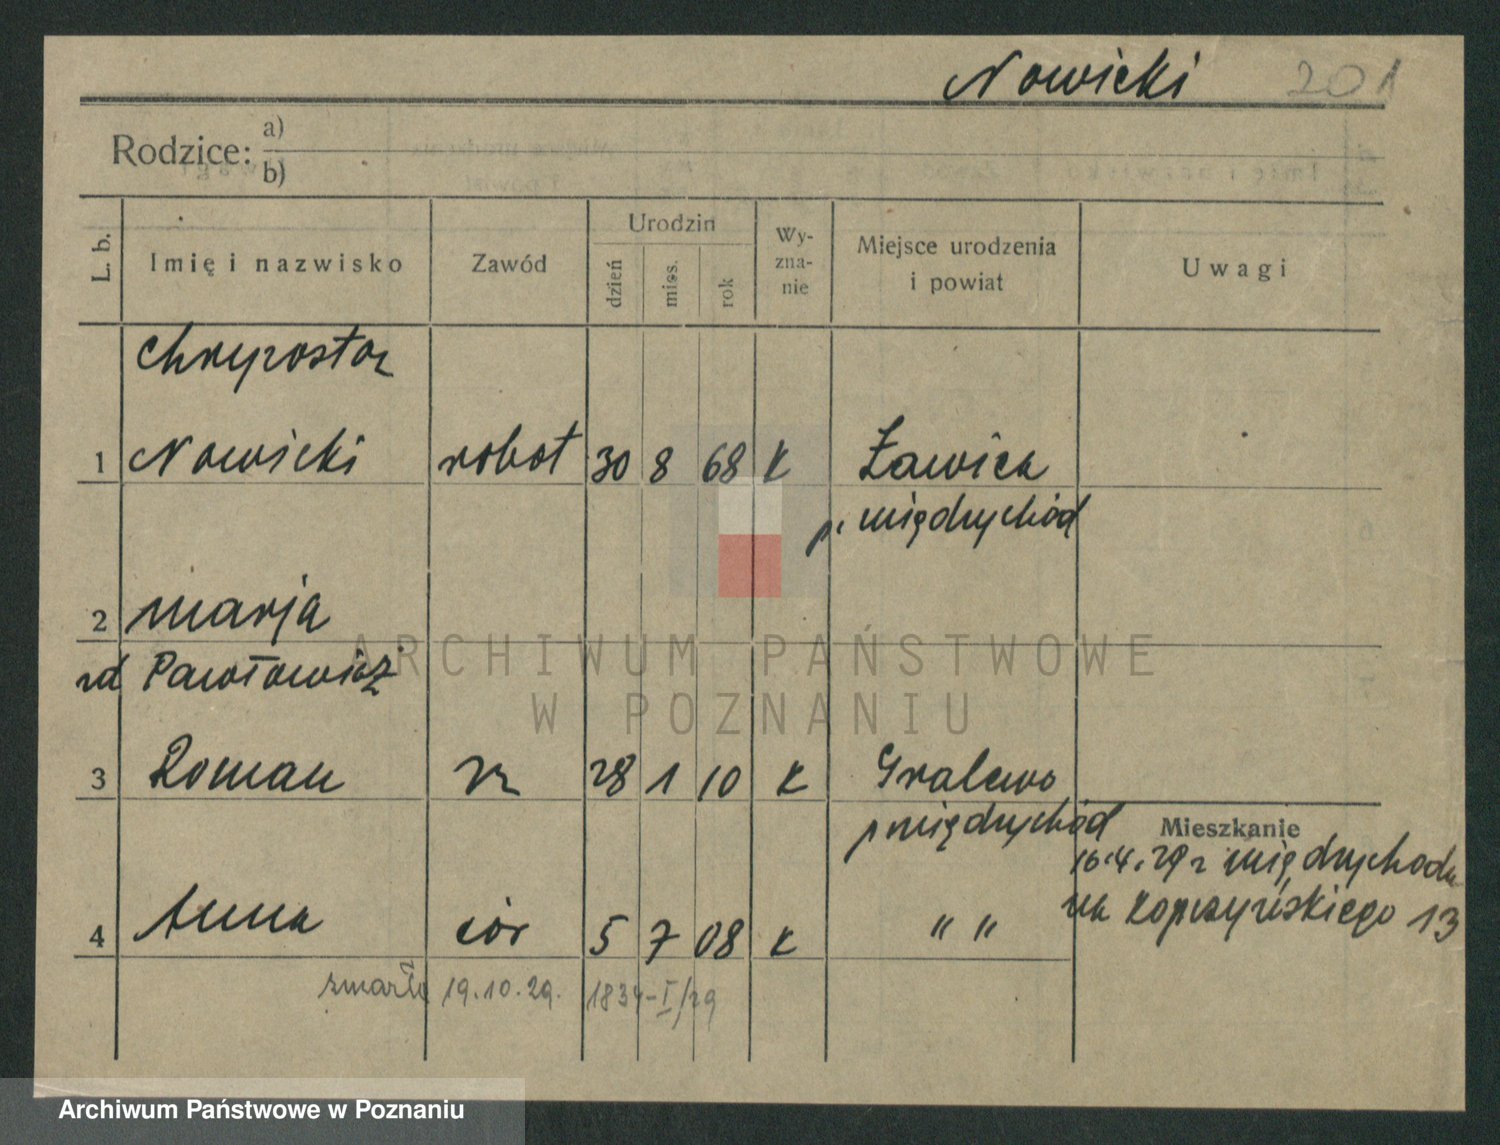 Nowicki 201
Rodzice: a)
b)
L. b. Imię i nazwisko Zawód Urodzin Wy-zna-nie Miejsce urodzenia i powiat Uwagi
dzień mies. rok
Chryzostom
1 Nowicki robot 30 8 68 K Ławica
p. międzychód
2 marja
zd Pawłowicz
3 Roman 28 1 10 K Gralewo
p międzychód
Mieszkanie
16.4.29 z międzychodu
na Kopczyńskiego 13
4 Anna cór 5 7 08 K " "
zmarła 19.10.29. 1834-I/29
ARCHIWUM PAŃSTWOWE
W POZNANIU
Archiwum Państwowe w Poznaniu